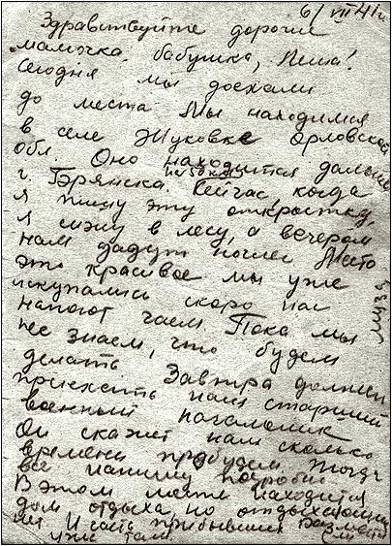 6/VII 41г.
Здравствуйте дорогие
мамочка, бабушка, Леша!
Сегодня мы доехали
до места. Мы находимся
в селе Жуковке Орловской
обл. Оно находится дальше
г. Брянска на 50 км. Сейчас, когда
я пишу эту открытку,
я лежу в лесу, а вечером
нам дадут ночлег. Место
это красивое мы уже
искупались скоро нас
напоют чаем. Пока мы
не знаем, что будем
делать. Завтра должен
приехать наш старший
военный начальник
Он скажет нам сколько
времени пробудем. Тогда
все напишу подробно
В этом месте находится
дом отдыха, но отдыхающих
уже там